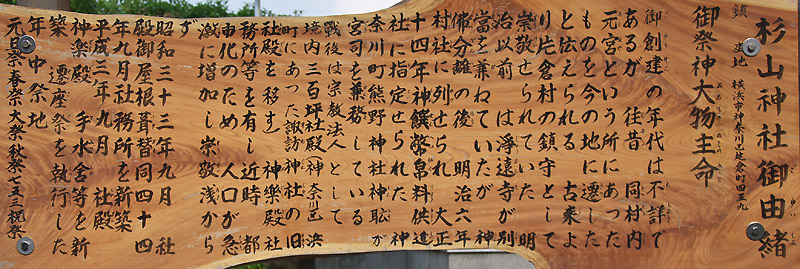 杉山神社御由緒
鎮座地 横浜市神奈川区片倉町四三九
御祭神大物主命
御創建の年代は不詳で
あるが 往昔 同村内
元宮という所にあった
ものを今の地に遷した
と伝えられる 古来よ
り片倉村の鎮守として
崇敬せられていた 明
治以前 は浄遠寺が別
当を兼ねていたが 神
佛分離の後 明治六年
村社に列せられ 大正
十四年神饌幣帛料供進
社に指定せられた 神
奈川町熊野神社神職が
宮司を兼務している
戦後は宗教法人として
境内三百坪社殿(神奈川区浜
町にあった諏訪神社の旧
社殿を移す)神楽殿社
務所等を有し 近時都
市化のため 人口が急
激に増加し崇敬浅から
ず
昭和三十三年九月 社
殿御屋根葺替同四十四
年九月社務所を新築
平成三年九月 社殿
神楽殿 手水舎等を新
築 遷座祭を執行した
年中祭地
元旦祭春祭大祭秋祭七五三祝祭